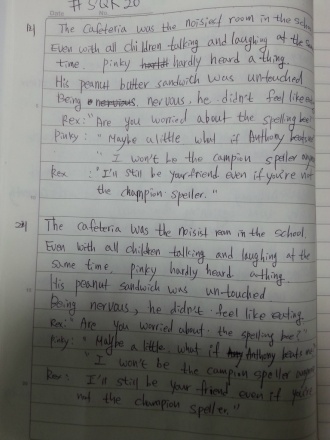 # SQR 20
The Cafeteria was the noisiest room in the school
Even with all children talking and laughing at the same
time. pinky hardly heard a thing.
His peanut butter sandwich was un-touched
Being nervous, he didn't feel like
Rex: "Are you worried about the spelling bee?"
Pinky: "Maybe a little what if Anthony beats me
"I won't be the campion speller
Rex: "I'll still be your friend even if you're not
the champion speller."
The cafeteria was the noisist room in the school.
Even with all children talking and laughing at the
same time. pinky hardly heard athing.
His peanut sandwich was un-touched
Being nervous, he didn't feel like eating.
Rex: "Are you worried about the spelling bee?"
Pinky: "Maybe a little what if Anthony beats me"
"I won't be the campion speller
Rex: I'll still be your friend even if you're
not the champion speller."